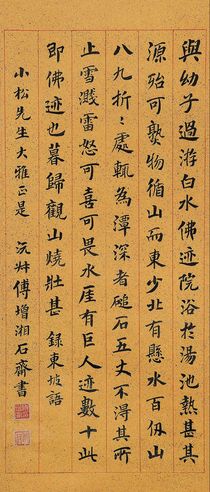 與幼子過游白水佛迹院浴於湯池熱甚其
源殆可熟物循山而東少北有懸水百仞山
八九折折處輒為潭深者磓石五丈不得其所
止雪濺雷怒可喜可畏水厓有巨人迹數十此
即佛迹也暮歸觀山燒壯甚 錄東坡語
小松先生大雅正是 沅叔傅增湘石齋書